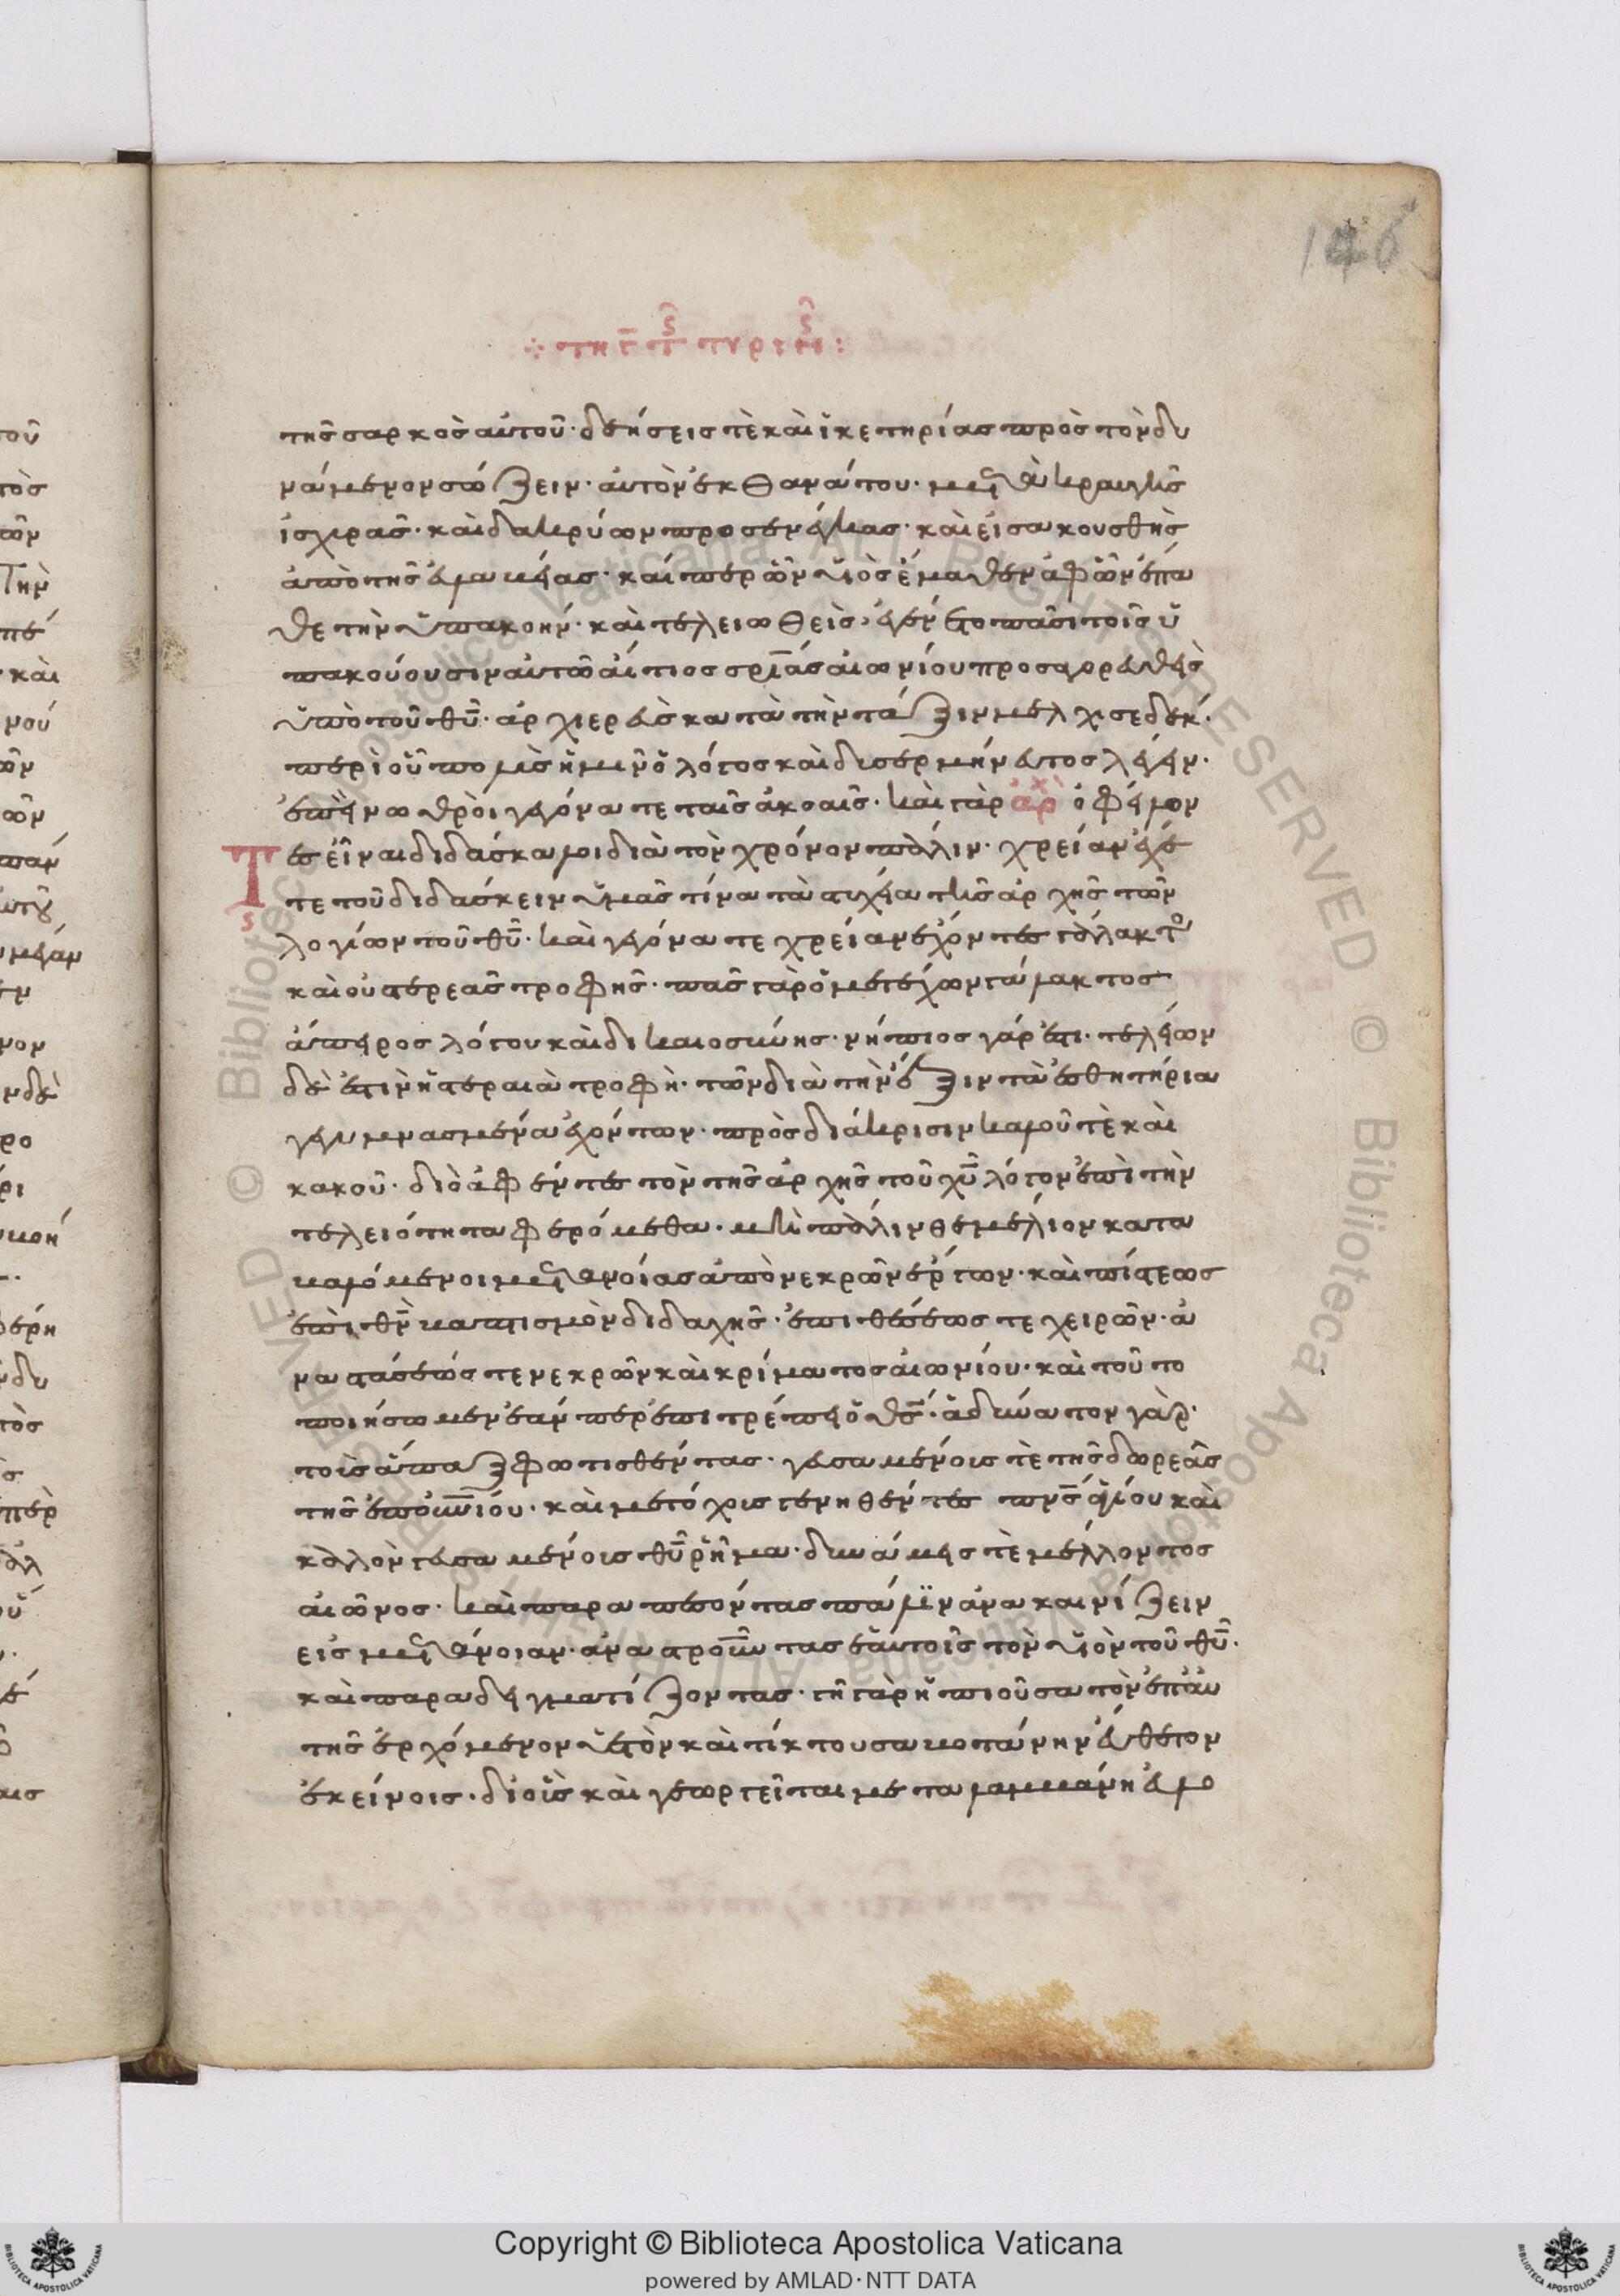 146
τῆς σαρκὸς αὐτοῦ· δεήσεις τὲ καὶ ἱκετηρίας πρὸς τὸν δυ
νάμενον σώζειν· αὐτὸν ἐκ θανάτου· μετὰ κραυγῆς
ἰσχυρᾶς· καὶ δακρύων προσενέγκας· καὶ εἰσακουσθῆς
ἀπὸ τῆς εὐλαβείας· καίπερ ὢν υἱὸς ἔμαθεν ἀφ ὧν ἔπα
θε τὴν ὑπακοήν· καὶ τελειωθεὶς, ἐγένετο πᾶσι τοῖς ὑ
πακούουσιν αὐτῶ αἴτιος σρίας αἰωνίου προσαγορευθεὶς
ὑπὸ τοῦ θυ· ἀρχιερεὺς κατὰ τὴν τάξιν μελχισεδέκ·
περὶ οὗ πολὺς ἡμῖν ὁ λόγος καὶ δυσερμήνευτος λέγειν·
ἐπεὶ νωθροὶ γεγόνατε ταῖς ἀκοαῖς· καὶ γὰρ ἀρχ ὀφείλον
τες εἶναι διδάσκαλοι διὰ τὸν χρόνον πάλιν· χρείαν ἔχε
τε τοῦ διδάσκειν ὑμᾶς τίνα τὰ στιχεία τῆς ἀρχῆς τῶν
λογίων τοῦ θυ· καὶ γεγόνατε χρείαν ἔχοντες γάλακτο
καὶ οὐ στερεᾶς τροφῆς· πᾶς γὰρ ὁ μετέχων γάλακτος
ἄπειρος λόγου καὶ δικαιοσύνης· νήπιος γάρ ἐστι· τελείων
δέ ἐστιν ἡ στεραιὰ τροφὴ· τῶν διὰ τὴν ἕξιν τὰ ἐσθητήρια
γεγυμνασμένα ἐχόντων· πρὸς διάκρισιν καλοῦ τὲ καὶ
κακοῦ· διὸ ἀφέντες τὸν τῆς ἀρχῆς τοῦ χυ λόγον ἐπὶ τὴν
τελειότητα φερόμεθα· μὴ πάλιν θεμέλιον κατα
βαλόμενοι μετανοίας ἀπὸ νεκρῶν ἔργων· καὶ πίστεως
ἐπὶ θν βαπτισμὸν διδαχῆς· ἐπιθέσεως τε χειρῶν· ἀ
ναστάσεώς τε νεκρῶν καὶ κρίματος αἰωνίου· καὶ τοῦτο
ποιήσωμεν ἐάνπερ ἐπιτρέπει ὁ θς· ἀδύνατον γὰρ·
τοὶς ἅπαξ φωτισθέντας· γευσαμένοις τὲ τῆς δωρεᾶς
τῆς ἐπουνίου· καὶ μετόχοις γενηθέντες πνς ἁγίου καὶ
καλλὸν γευσαμένοις θυ ῥῆμα· δυνάμεις τὲ μέλλοντος
αἰῶνος· καὶ παραπεσόντας πάλϊν ἀνακαινίζειν
εἰς μετάνοιαν· ἀναστροῦντας ἑαυτοῖς τὸν υἱὸν τοῦ θυ·
καὶ παραδειγματίζοντας· γῆ γὰρ ἡ πιοῦσα τὸν ἐπαὐ
τῆς ἐρχόμενον ὑετὸν καὶ τίκτουσα βοτάνην εὔθετον
ἐκείνοις· δι οὓς καὶ γεωργεῖται μεταλαμβάνη εὐλο